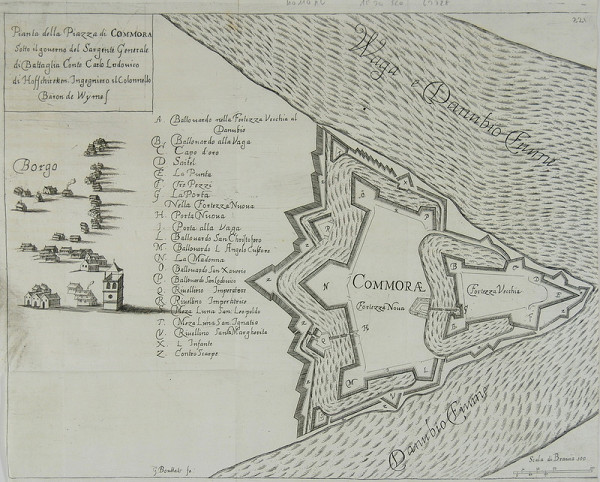 Pianta della Piazza di COMMORA
Sotto il governo del Sargente Generale
di Battaglia Conte Carlo Lodovico
di Hoffchirchen. Ingegniero il Colonnello
Baron de Wymes
Borgo
A. Ballouardo nella Fortezza Vecchia al
Danubio
B. Ballouardo alla Vaga
C. Capo d'oro
D. Saitel
E. La Punta
F. Tre Pezzi
G. La Porta
Nella Fortezza Nuoua
H. Porta Nuoua
J. Porta alla Vaga
L. Ballouardo San Christoforo
M. Ballouardo L Angelo Custore
N. La Madonna
O. Ballouardo San Xauerio
P. Ballouardo San Leduuico
Q. Riuellino Imperatore
R. Riuellino Imperatrice
Meza Luna San Leopoldo
T. Meza Luna San Ignatio
V. Riuellino Santa Margherita
X. L Infante
Z. Contro Scarpe
Waga e Danubio Fiume
COMMORÆ
Fortezza Noua
Fortezza Vecchia
Danubio Fiume
Scala di Braccia 100